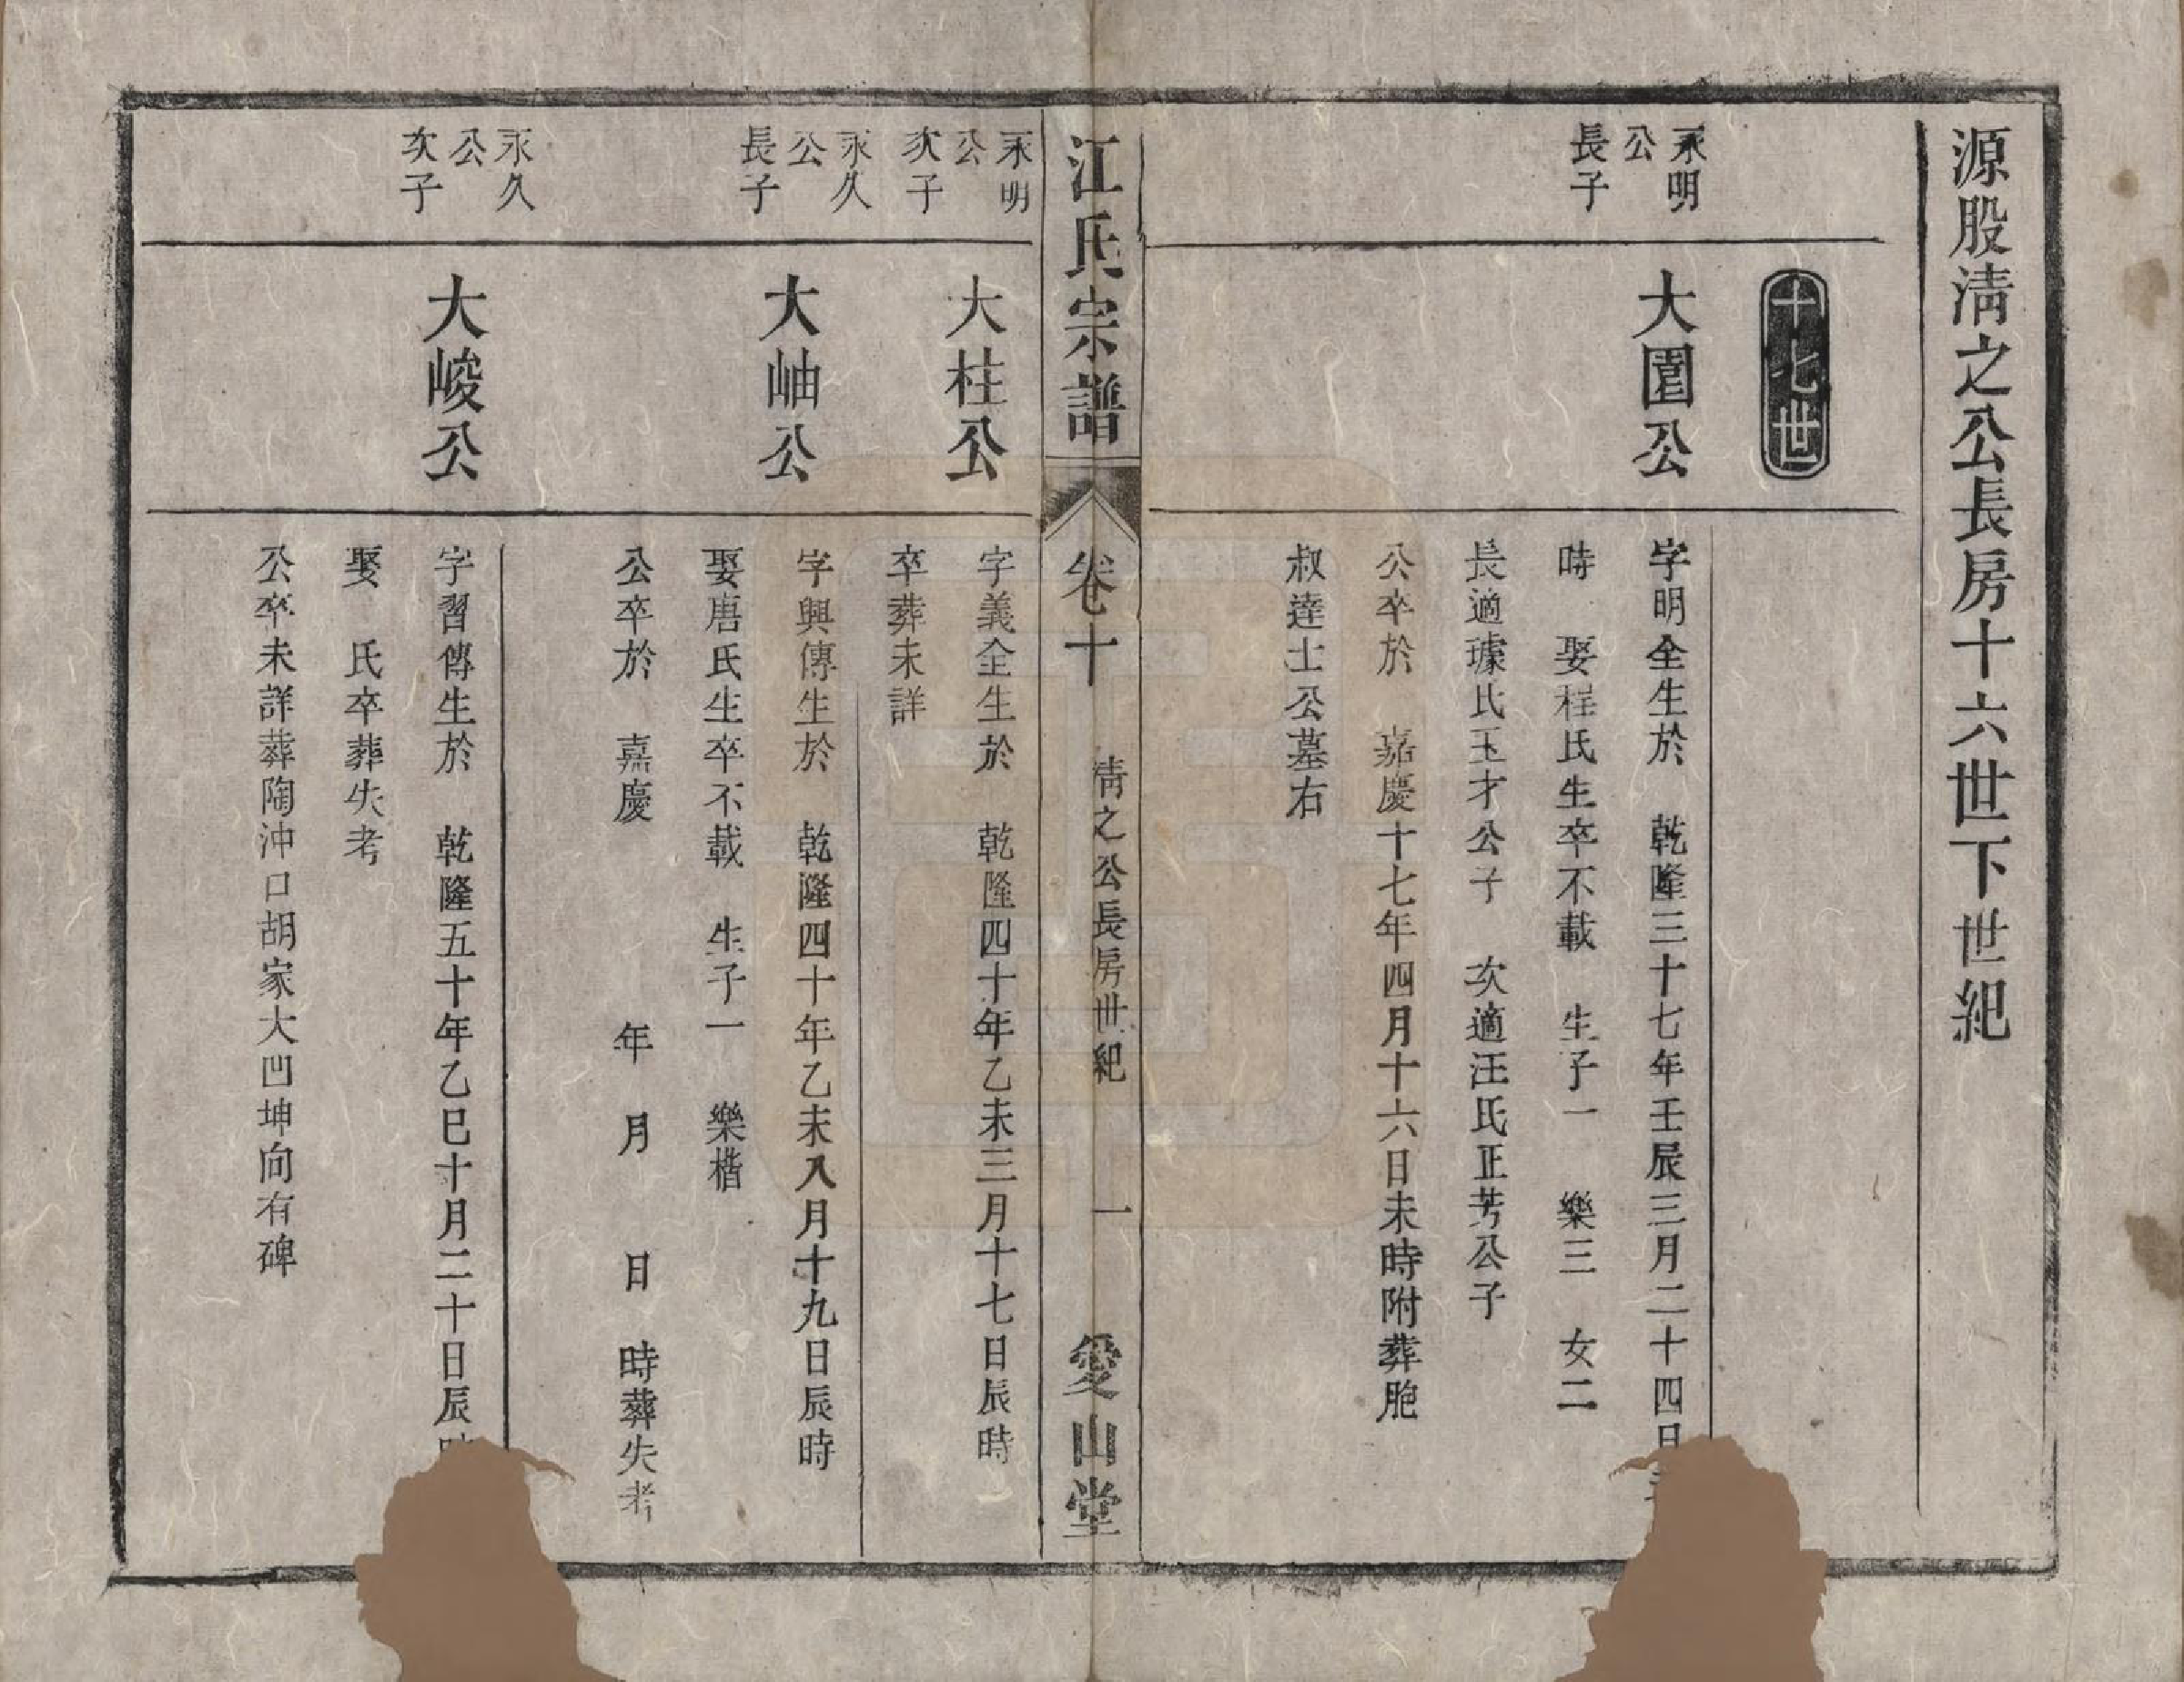 源股淸之公長房十六世下世紀
十七世
永明
公
長子
大園公
字明全生於　乾隆三十七年壬辰三月二十四日
時　娶程氏生卒不載　生子一　樂三　女二
長適璩氏玉才公子　次適汪氏正芳公子
公卒於　嘉慶十七年四月十六日未時附葬胞
叔達士公墓右
江氏宗譜
卷十
淸之公長房世紀
一
愛山堂
永明
公
次子
大柱公
字義全生於　乾隆四十年乙未三月十七日辰時
卒葬未詳
永久
公
長子
大岫公
字興傳生於　乾隆四十年乙未八月十九日辰時
娶唐氏生卒不載　生子一　樂楷
公卒於　嘉慶　　年　月　　日　時葬失考
永久
公
次子
大峻公
字習傳生於　乾隆五十年乙巳十月二十日辰時
娶　氏卒葬失考
公卒未詳葬陶沖口胡家大凹坤向有碑